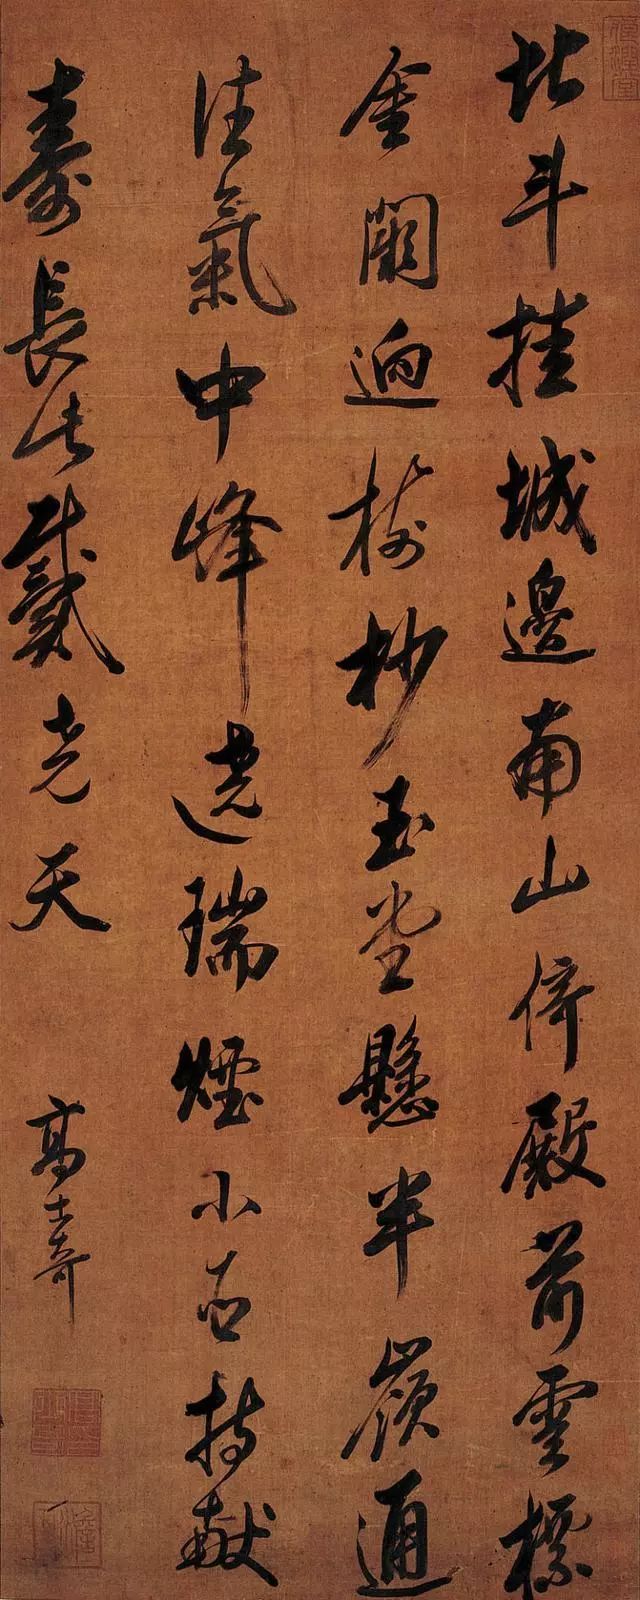 北斗挂城邊南山倚殿前雲標
金闕迥樹杪玉堂懸半嶺通
佳氣中峰遶瑞煙小臣持献
壽長此戴堯天
高士奇